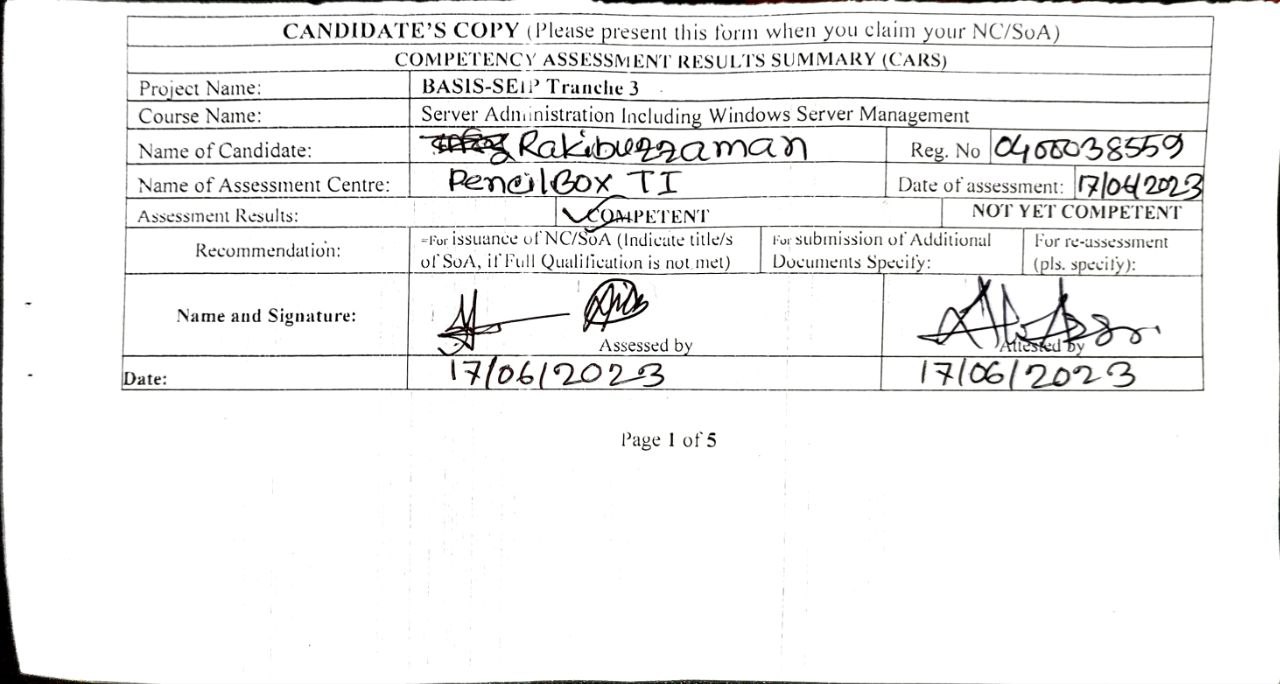 CANDIDATE'S COPY (Please present this form when you claim your NC/SoA)
COMPETENCY ASSESSMENT RESULTS SUMMARY (CARS)
Project Name: BASIS-SEIP Tranche 3
Course Name: Server Administration Including Windows Server Management
Name of Candidate: Rakibuzzaman Reg. No 0400038559
Name of Assessment Centre: PencilBox TI Date of assessment: 17/06/2023
Assessment Results: COMPETENT NOT YET COMPETENT
Recommendation: For issuance of NC/SoA (Indicate title/s of SoA, if Full Qualification is not met) For submission of Additional Documents Specify: For re-assessment (pls. specify):
Name and Signature: Assessed by Attested by
Date: 17/06/2023 17/06/2023
Page 1 of 5